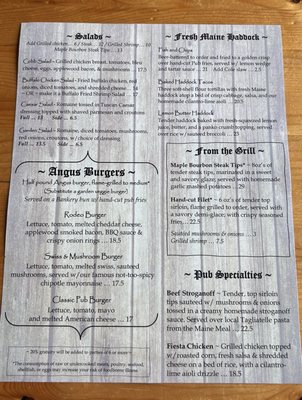 ~ Salads ~
Add Grilled chicken... 6 / Steak... 12 / Grilled Shrimp... 10
Maple Bourbon Steak Tips ... 13
Cobb Salad~ Grilled chicken breast, tomatoes, bleu
cheese, eggs, applewood bacon, & mushrooms ... 17.5
Buffalo Chicken Salad~ Fried buffalo chicken, red
onions, diced tomatoes, and shredded cheese ... 14
~ OR ~ make it a Buffalo Fried Shrimp Salad ... 17
Caesar Salad~ Romaine tossed in Tuscan Caesar
dressing topped with shaved parmesan and croutons
Full ... 13 Side ... 6.5
Garden Salad~ Romaine, diced tomatoes, mushrooms,
red onions, croutons, w/ choice of dressing
Full ... 13.5 Side ... 6.5
~ Angus Burgers ~
Half pound Angus burger, flame-grilled to medium*
(Substitute a garden veggie burger)
Served on a Bankery bun w/ hand-cut pub fries
Rodeo Burger
Lettuce, tomato, melted cheddar cheese,
applewood smoked bacon, BBQ sauce &
crispy onion rings ... 18.5
Swiss & Mushroom Burger
Lettuce, tomato, melted swiss, sauteed
mushrooms, served w/our famous not-too-spicy
chipotle mayonnaise ... 17.5
Classic Pub Burger
Lettuce, tomato, mayo
and melted American cheese ... 17
~ 20% gratuity will be added to parties of 6 or more ~
*The consumption of raw or undercooked meats, poultry, seafood,
shellfish, or eggs may increase your risk of foodborne illness
~ Fresh Maine Haddock ~
Fish and Chips
Beer-battered to order and fried to a golden crisp
over hand-cut Pub fries, served w/ lemon wedge
and tartar sauce ... 21 Add Cole slaw ... 2.5
Baked Haddock Tacos
Three soft-flour tortillas with fresh Maine
haddock atop a bed of crisp cabbage, salsa, and our
homemade cilantro-lime aioli ... 20
Lemon Butter Haddock
Tender haddock baked with fresh-squeezed lemon
juice, butter, and a panko crumb topping, served
over rice w/ sauteed broccoli ... 25
~ From the Grill ~
Maple Bourbon Steak Tips* ~ 8oz's of
tender steak tips, marinated in a sweet
and savory glaze; served with homemade
garlic mashed potatoes .. 29
Hand-cut Filet* ~ 6 oz's of tender top
sirloin, flame grilled to order, served with
a savory demi-glace; with crispy seasoned
fries,... 22.5
Sauteed mushrooms & onions ... 3
Grilled shrimp ... 7.5
~ Pub Specialties ~
Beef Stroganoff ~ Tender, top sirloin
tips sauteed w/ mushrooms & onions
tossed in a creamy homemade stroganoff
sauce. Served over local Tagliatelle pasta
from the Maine Meal ... 22.5
Fiesta Chicken ~ Grilled chicken topped
w/ roasted corn, fresh salsa & shredded
cheese on a bed of rice, with a cilantro-
lime aioli drizzle ... 18.5